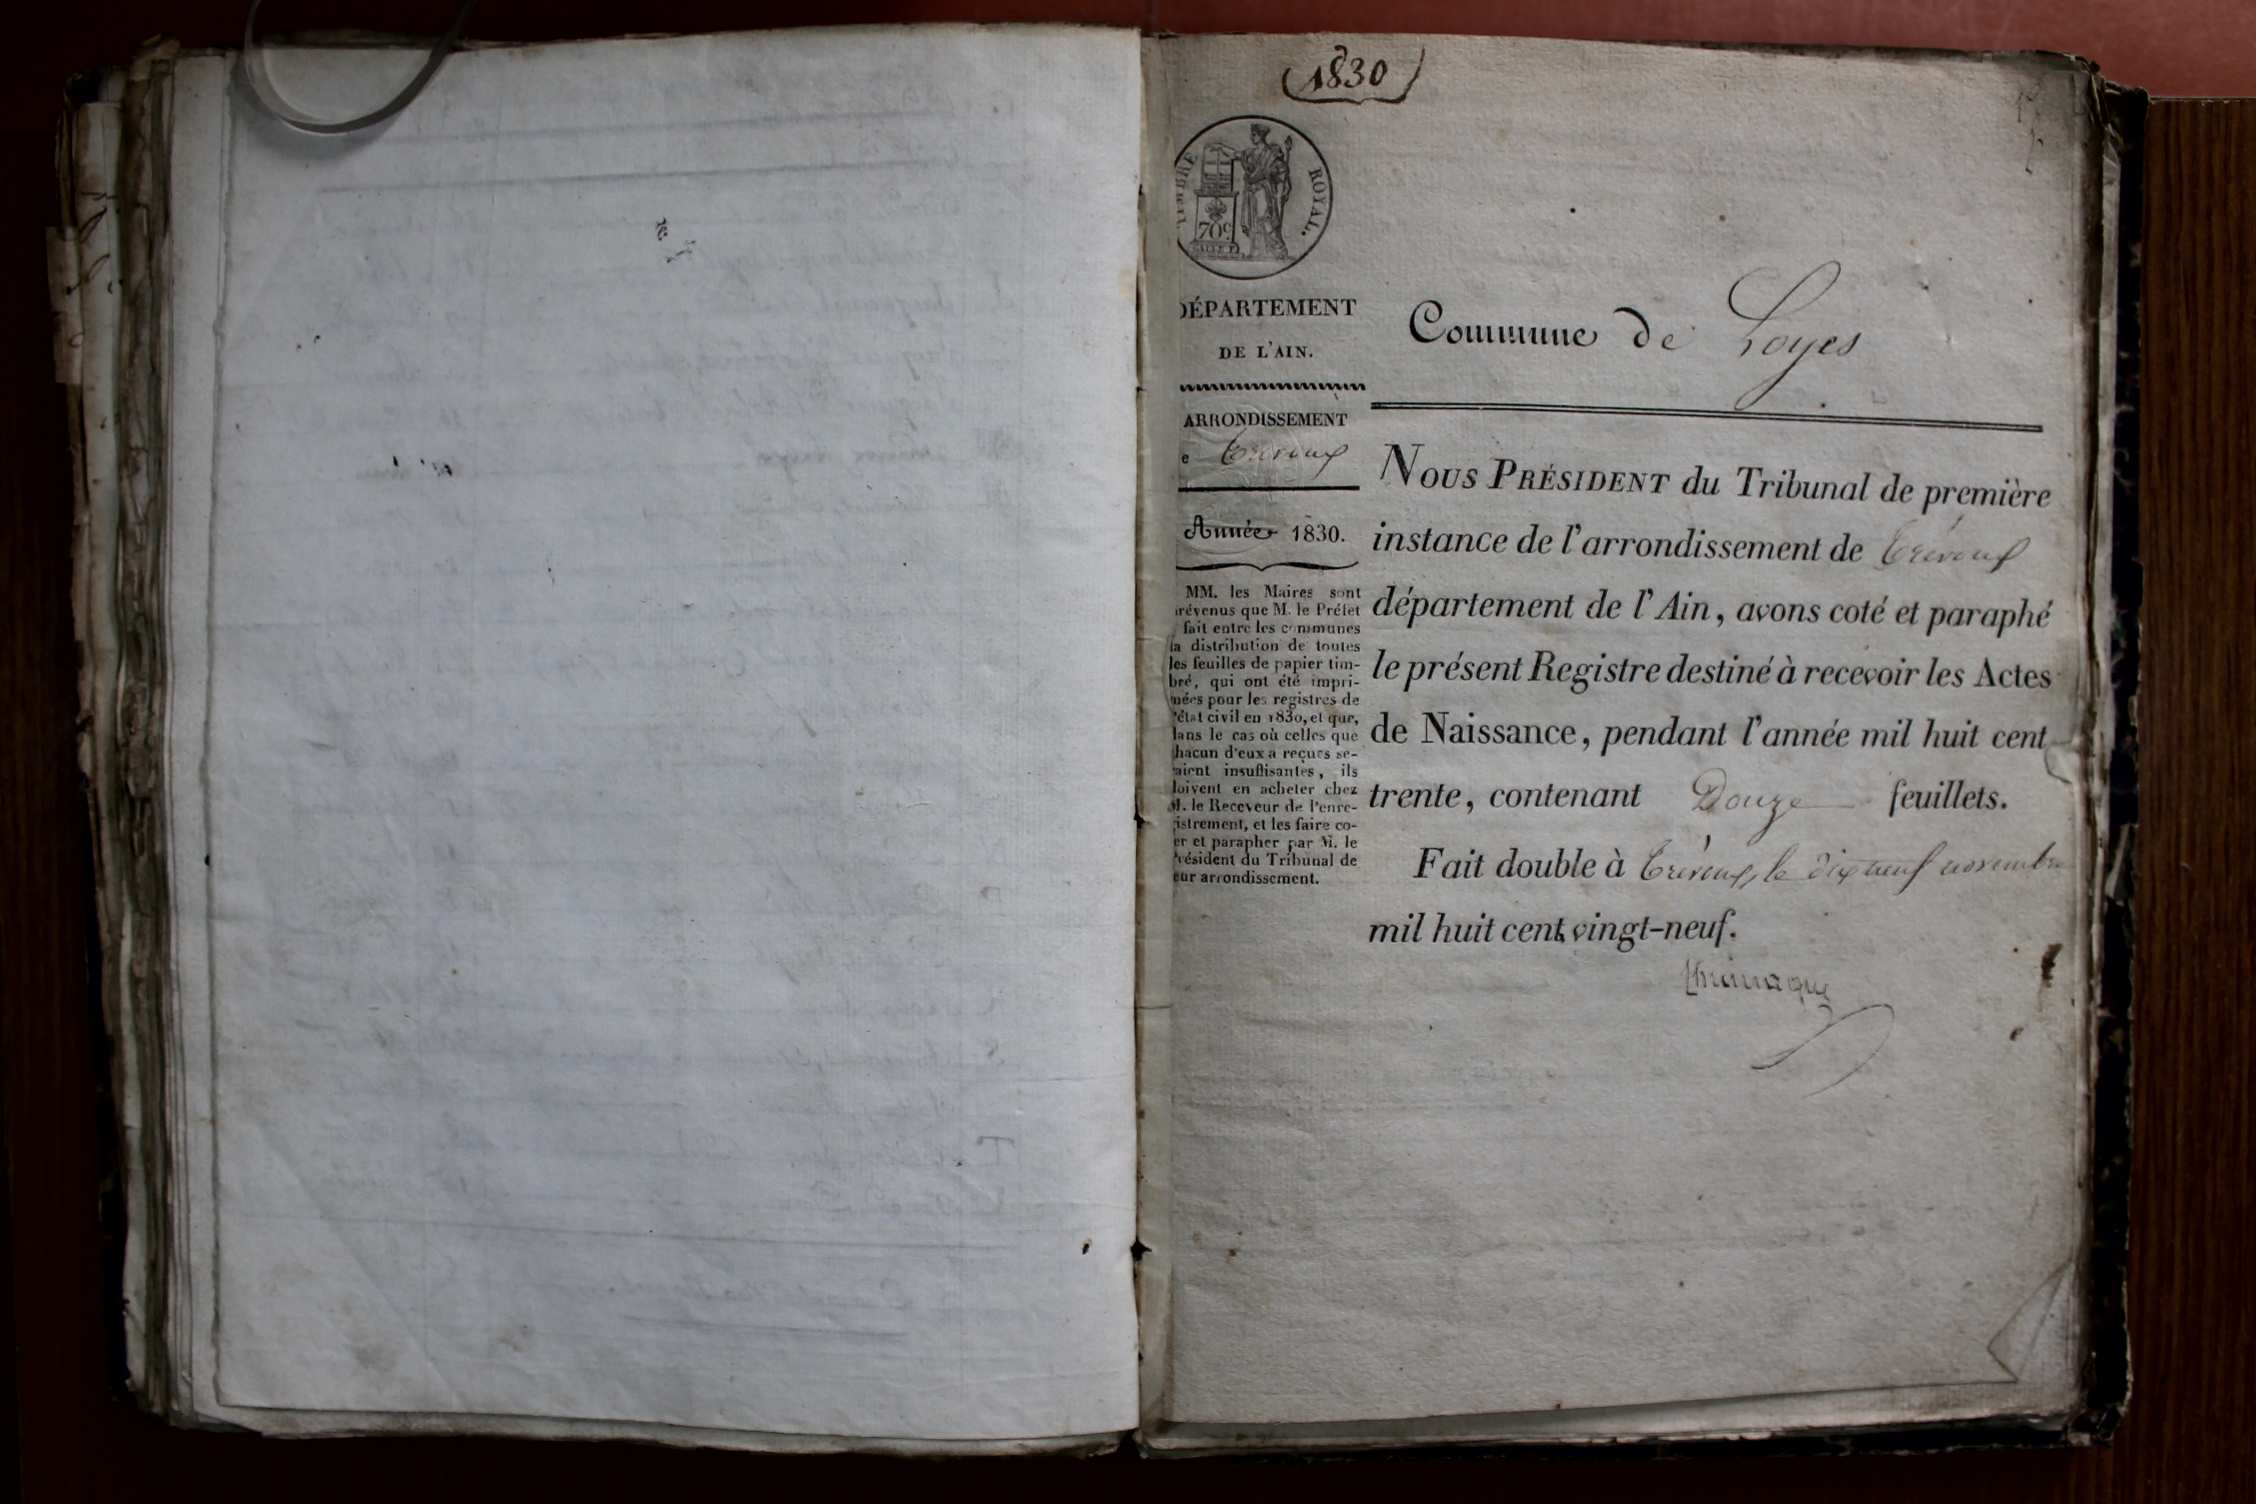 1830
TIMBRE ROYAL.
70c
DÉPARTEMENT
DE L'AIN.
ARRONDISSEMENT
e Trévoux
Année 1830.
MM. les Maires sont
révenus que M. le Préfet
fait entre les communes
la distribution de toutes
les feuilles de papier tim-
bré, qui ont été impri-
mées pour les registres de
l'état civil en 1830, et que,
dans le cas où celles que
chacun d'eux a reçues se-
raient insuffisantes, ils
doivent en acheter chez
M. le Receveur de l'enre-
gistrement, et les faire co-
er et parapher par M. le
Président du Tribunal de
eur arrondissement.
Commune de Loyes
NOUS PRÉSIDENT du Tribunal de première
instance de l'arrondissement de Trévoux
département de l'Ain, avons coté et paraphé
le présent Registre destiné à recevoir les Actes
de Naissance, pendant l'année mil huit cent
trente, contenant Douze feuillets.
Fait double à Trévoux, le dix neuf novembre
mil huit cent vingt-neuf.